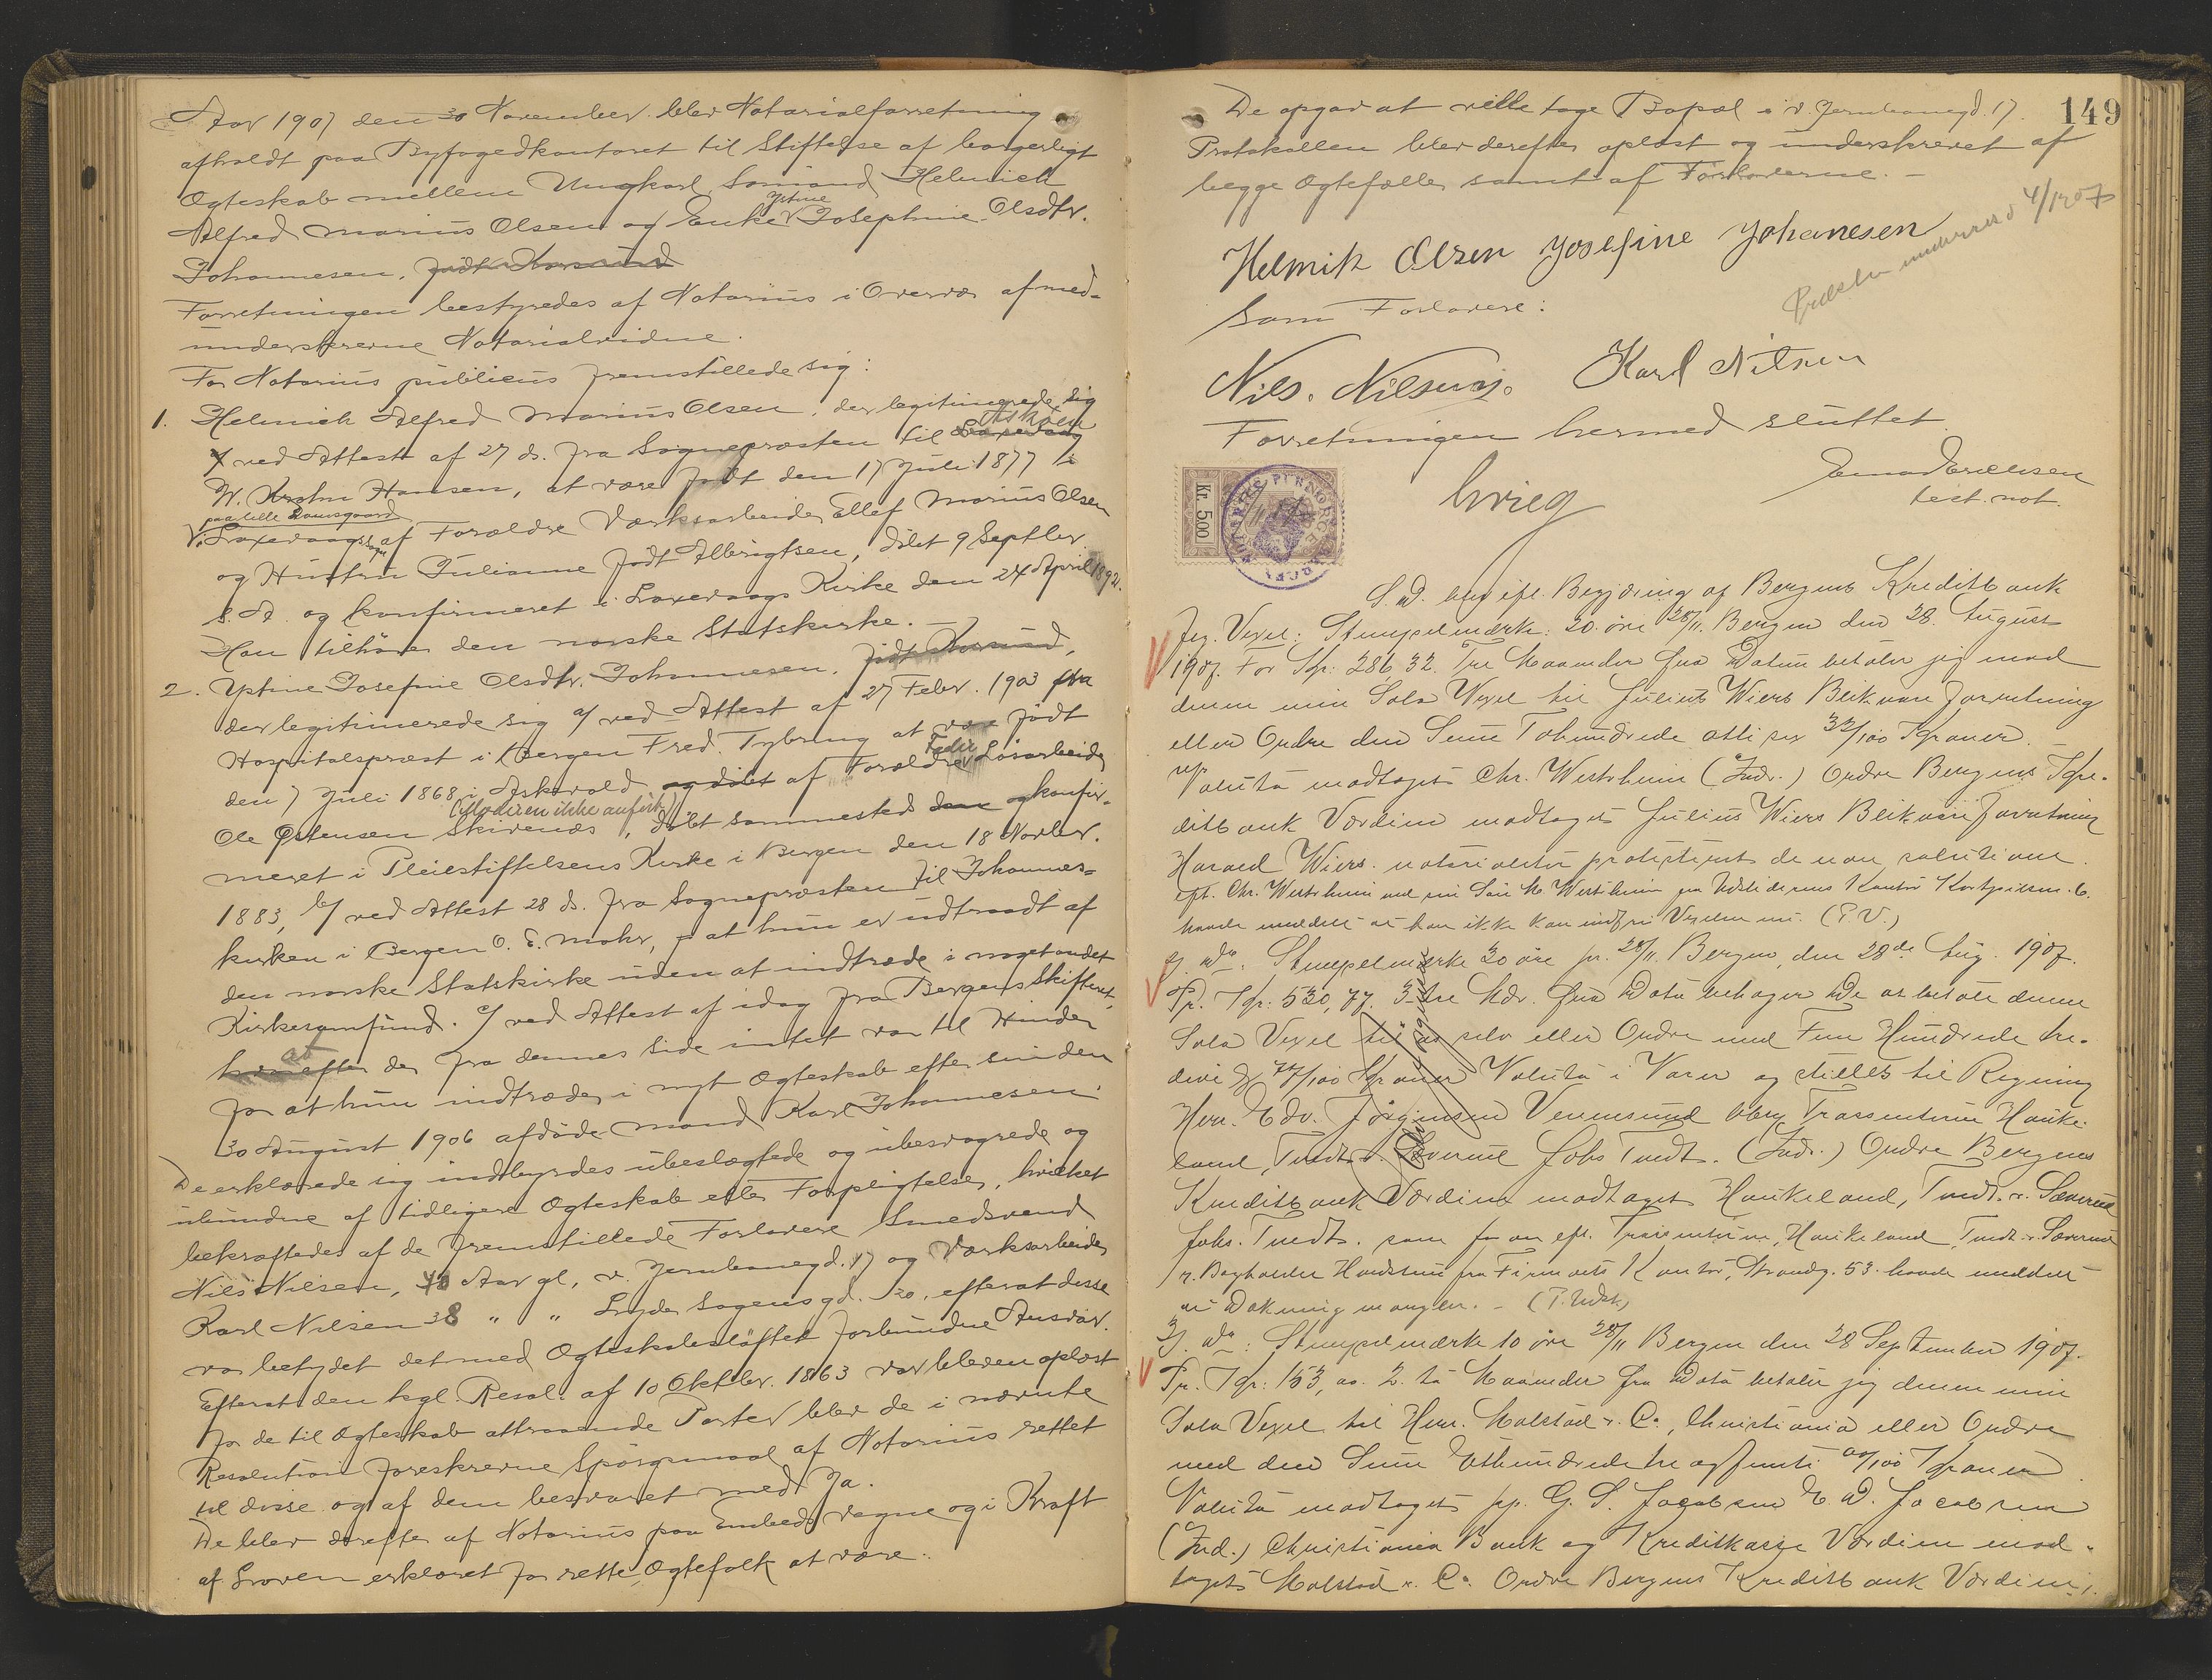 Aar 1907 den 30 November blev Notarialforretning
afholdt paa Byfogedkontoret til Stiftelse af borgerligt
Ægteskab mellem Ungkarl Sømand Helmich
Alfred Marius Olsen og Enke Ystine Josephine Olsdtr.
Johannesen, født
Forretningen bestyredes af Notarius i Overvær af med-
underskrevne Notarialvidne.
For Notarius publicus fremstillede sig:
1. Helmich Alfred Marius Olsen, der legitimerede sig
ved Attest af 27 ds. fra Sognepræsten til Askøen
W. Hansen, at være født den 17 Juli 1877 i
paa lille Damsgaard
Laxevaags Sogn af Forældre Værksarbeider Ellef Marius Olsen
og Hustru Julianne født Albrigtsen, døbt 9 Septbr
s. A. og konfirmeret i Laxevaags Kirke den 24 April 1892.
Han tilhører den norske Statskirke. —
2. Ystine Josefine Olsdtr. Johannesen, født
der legitimerede sig a/ ved Attest af 27 Febr. 1903 fra
Hospitalspræst i Bergen Fred. Tybring at være født
den 7 Juli 1868 i Askvold og døbt af Forældre Fader Løsarbeider
(Moderen ikke anført)
Ole Østensen Skivenes, døbt sammesteds og konfir-
meret i Pleiestiftelsens Kirke i Bergen den 18 Novbr.
1883, b/ ved Attest 28 ds. fra Sognepræsten til Johannes-
kirken i Bergen O. E. Mohr, at hun er udtraadt af
den norske Statskirke uden at indtræde i noget andet
Kirkesamfund. c/ ved Attest af idag fra Bergens Skifteret,
at der fra dennes Side intet var til Hinder
for at hun indtræder i nyt Ægteskab efter sin den
30 August 1906 afdøde Mand Karl Johannesen.
De erklærede sig indbyrdes ubeslægtede og ubesvogrede og
ubundne af tidligere Ægteskab eller Forpligtelser, hvilket
bekræftedes af de fremstillede Forlovere Smedsvend
Nils Nilsen, 40 Aar gl, v. Jernbanegd. 17 og Værksarbeider
Karl Nilsen 38 " " Lyder Sagensgd. 20, efterat disse
var betydet det med Ægteskabsløftet forbundne Ansvar.
Efterat den kgl. Resol. af 10 Oktbr. 1863 var bleven oplæst
for de til Ægteskab attraaende Parter blev de i nævnte
Resolution foreskrevne Spørgsmaal af Notarius rettet
til disse og af dem besvaret med Ja.
De blev derefter af Notarius paa Embeds vegne og i Kraft
af Loven erklæret for rette Ægtefolk at være.
149
De opgav at ville tage Bopæl i v. Jernbanegd. 17.
Protokollen blev derefter oplæst og underskrevet af
begge Ægtefæller samt af Forloverne. —
Præsten underret d 4/12 07
Helmik Olsen Josefine Johanesen
Som Forlovere:
Nils. Nilsen. Karl Nilsen
Forretningen hermed sluttet.
Krieg
test. not.
Kr. 5.00
S. D. blev efr. Begjæring af Bergens Kreditbank
Jeg. Vexel: Stempelmærke: 20 øre 28/11. Bergen den 28. August
1907. For Kr: 286 32. Tre Maaneder fra Datum betaler jeg mod
denne min Sola Vexel til Julius Wiers Blikvareforretning
eller Ordre den Sum Tohundrede otti sex 32/100 Kroner. —
Valuta modtaget Chr. Westrheim (Indr.) Ordre Bergens Kre-
ditbank Værdien modtaget Julius Wiers Blikvareforretning
Harald Wiers. notarialiter protesteret de non solutione
eft. Chr. Westrheim ved sin Søn M Westrheim fra
havde meddelt at han ikke kan indfri Vexelen nu. (P. V.)
2) do. Stempelmærke 30 øre pr. 28/11. Bergen, den 28de Aug. 1907.
Pr. Kr: 530,77. 3 tre Mdr. fra Dato behager De at betale denne
Sola Vexel til os selv eller Ordre med Fem Hundrede tre-
devi & 77/100 Kroner Valuta i Varer og stilles til Regning
Herr. Edv. Jørgensen Vennesund Trassenterne Hauke-
land, Tvedt & Sæverud Johs Tvedt. (Indr.) Ordre Bergens
Kreditbank Værdien modtaget Haukeland, Tvedt & Sæverud
Johs. Tvedt. som for an efr. Trassenterne, Haukeland, Tvedt & Sæverud
v. Bogholder fra Firmaets Kontor, Strandg. 53. havde meddelt
at Dækning mangler. — (P. Udst.)
3) do: Stempelmærke 10 øre 28/11 Bergen den 28 September 1907.
Pr. Kr: 153, 00. 2. to Maaneder fra Dato betaler jeg denne min
Sola Vexel til Herr. Molstad & Co., Christiania eller Ordre
med den Sum Ethundrede tre og femti 00/100 Kroner.
Valuta modtaget pp. G. S. Jacobsen E. D. Jacobsen
(Ind.) Christiania Bank og Kreditkasse Værdien mod-
taget Molstad & Co. Ordre Bergens Kreditbank Værdien